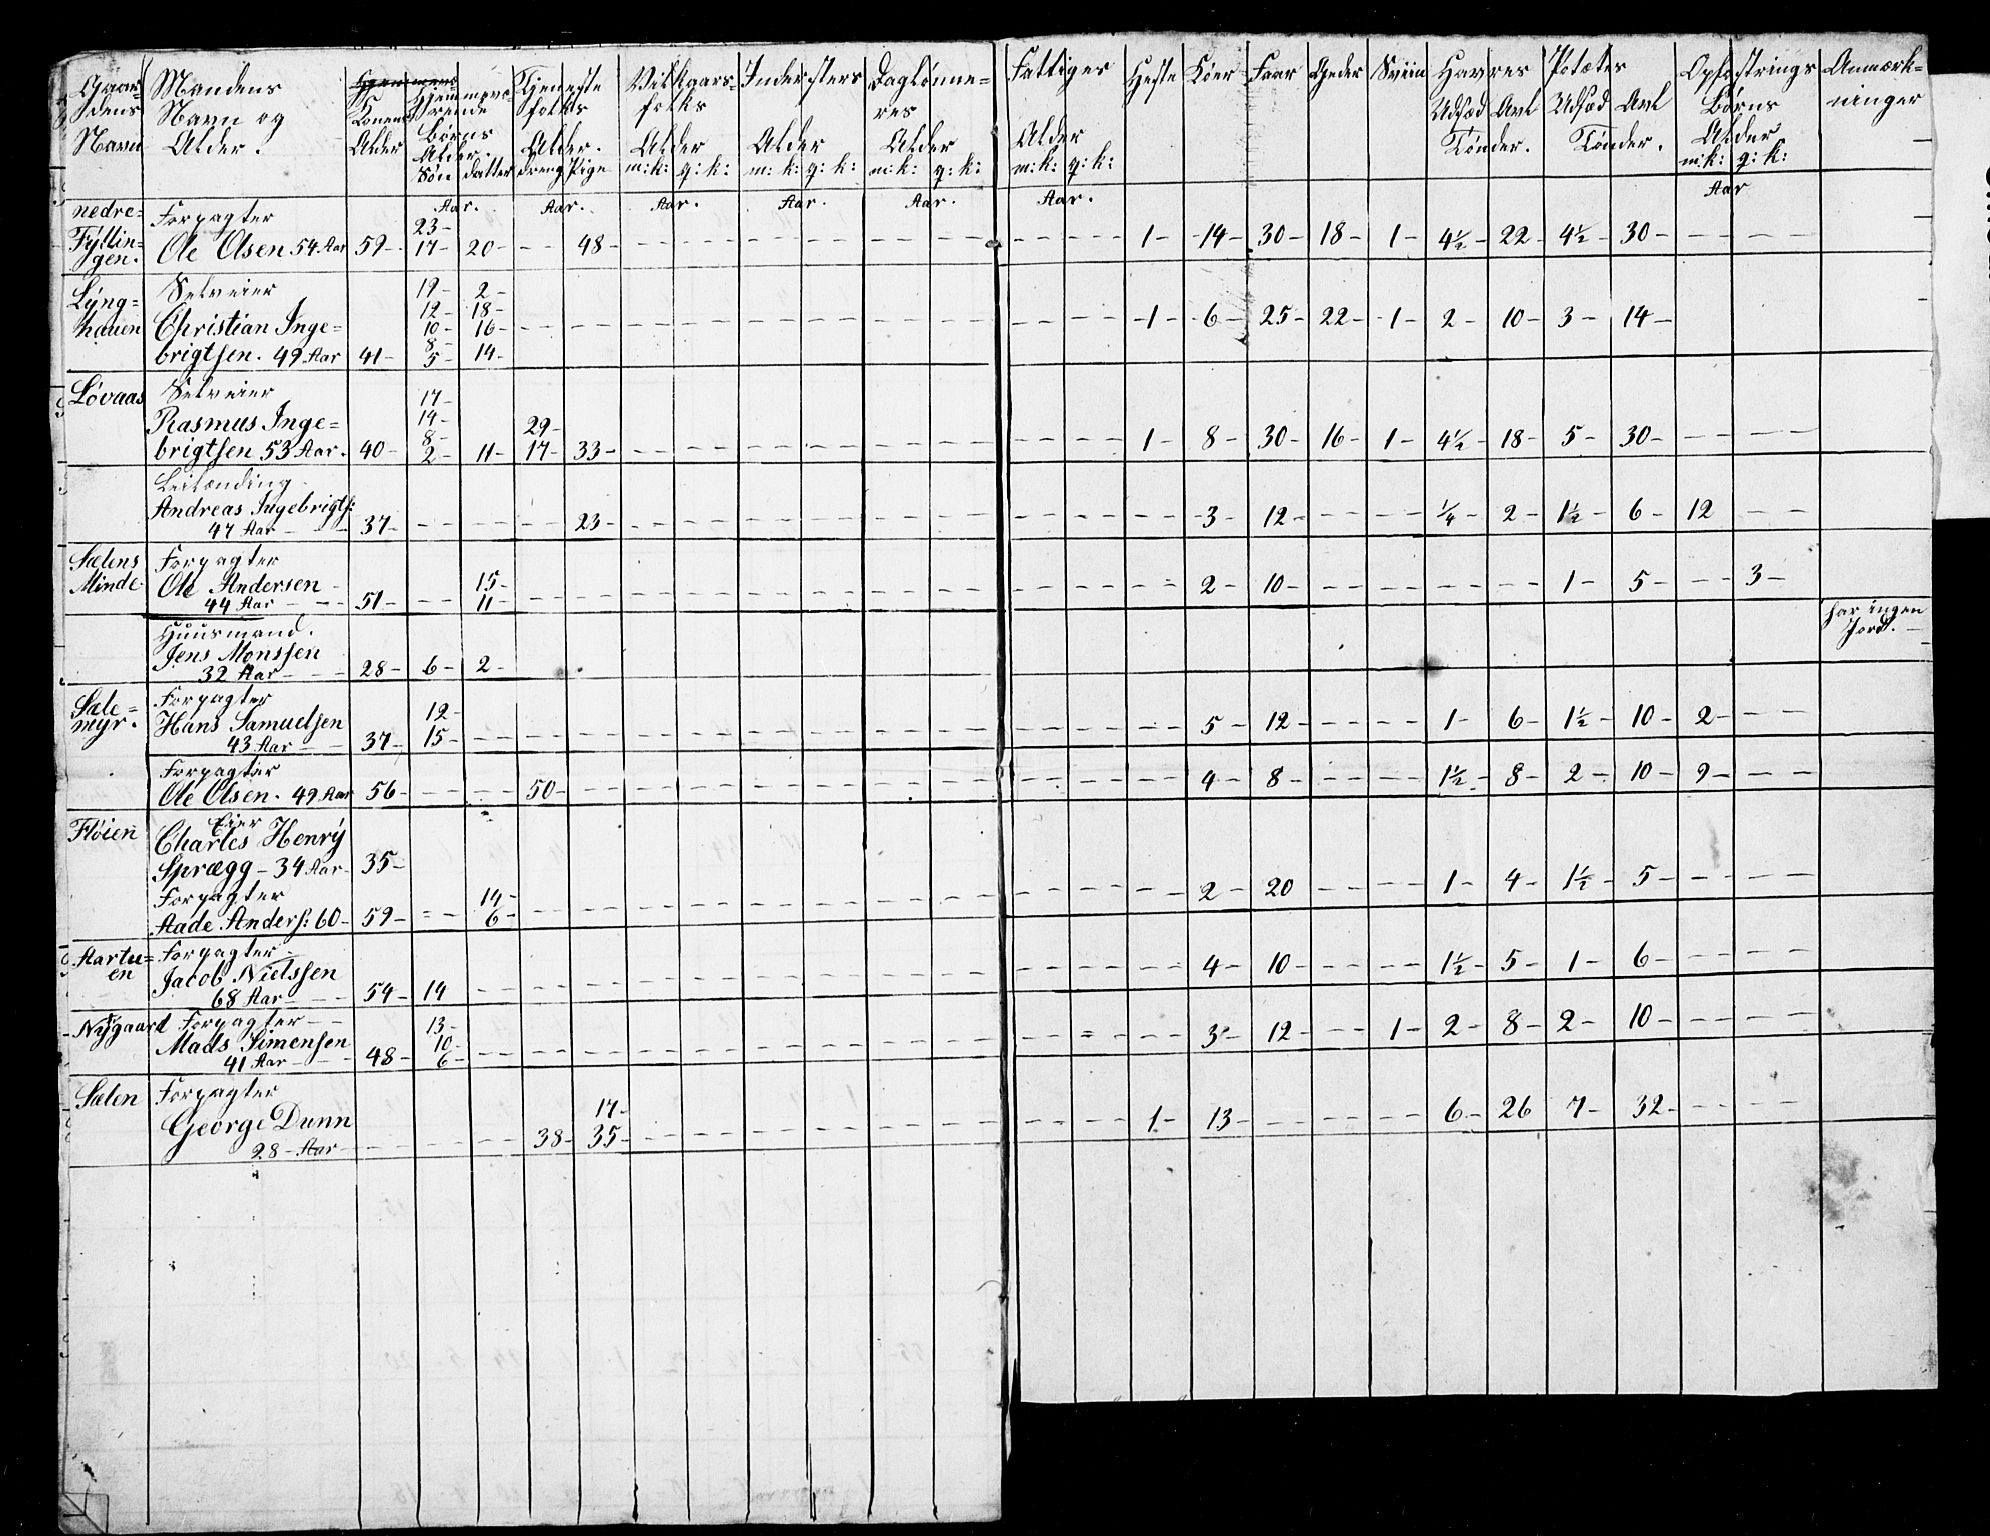 Gaardens Navn | Mandens Navn og Alder. | Konens Alder | Hjemmeværende Børns Alder. Søn | datter | Tjeneste folks Alder. Dreng | Pige | Vilkaarsfolks Alder m:k: | q:k: | Indersters Alder m:k: | q:k: | Daglønneres Alder m:k: | q:k: | Fattiges Alder m:k: | q:k: | Heste | Køer | Faar | Geder | Sviin | Havres Udsæd | Avl Tønder. | Potætes Udsæd | Avl Tønder. | Opfostrings Børns Alder m:k: | q:k: | Anmærkninger
Aar. | Aar. | Aar. | Aar. | Aar. | Aar. | Aar
nedre= | Forpagter | 23-
Fyllin= | Ole Olsen 54 Aar | 59- | 17- | 20- | - | 48- | 1- | 14- | 30- | 18- | 1- | 4½- | 22- | 4½- | 30-
gen.
Selveier | 19- | 2-
Lyng= | 12- | 18-
hauen | Christian Inge= | 10- | 16- | 1- | 6- | 25- | 22- | 1- | 2- | 10- | 3- | 14-
8-
brigtsen. 49 Aar | 41- | 5- | 14-
Løvaas | Selveier | 17-
Rasmus Inge= | 14- | 29-
8-
brigtsen 53 Aar. | 40- | 2- | 11- | 17- | 33- | 1- | 8- | 30- | 16- | 1- | 4½- | 18- | 5- | 30-
Leilænding
Andreas Ingebrigts:
47 Aar | 37- | 23- | 3- | 12- | ¼- | 2- | 1½- | 6- | 12
Sælens | Forpagter
Minde | Ole Andersen | 15- | 2- | 10- | 1- | 5- | 3-
44 Aar | 51- | 11-
Huusmand. | har ingen
Jens Monssen | Jord.
32 Aar | 28- | 6- | 2-
Sæle= | Forpagter
myr. | Hans Samuelsen | 12- | 5- | 12- | 1- | 6- | 1½- | 10- | 2-
43 Aar | 37- | 15-
Forpagter
Ole Olsen. 49 Aar | 56- | 50- | 4- | 8- | 1½- | 8- | 2- | 10- | 9-
Fløien | Eier
Charles Henry
Sprægg - 34 Aar | 35-
Forpagter | 14-
Aade Anders: 60- | 59- | 6- | 2- | 20 | 1- | 4- | 1½- | 5-
Aartu= | Forpagter
en | Jacob Nielssen
68 Aar | 54- | 14 | 4- | 10- | 1½- | 5- | 1- | 6-
Nygaard | Forpagter | 13-
Mads Simensen | 10-
41 Aar | 48- | 6- | 3- | 12- | 1- | 2- | 8- | 2- | 10-
Sælen | Forpagter
George Dunn | 17-
28 - Aar | 38- | 35- | 1- | 13- | 6- | 26 | 7- | 32-